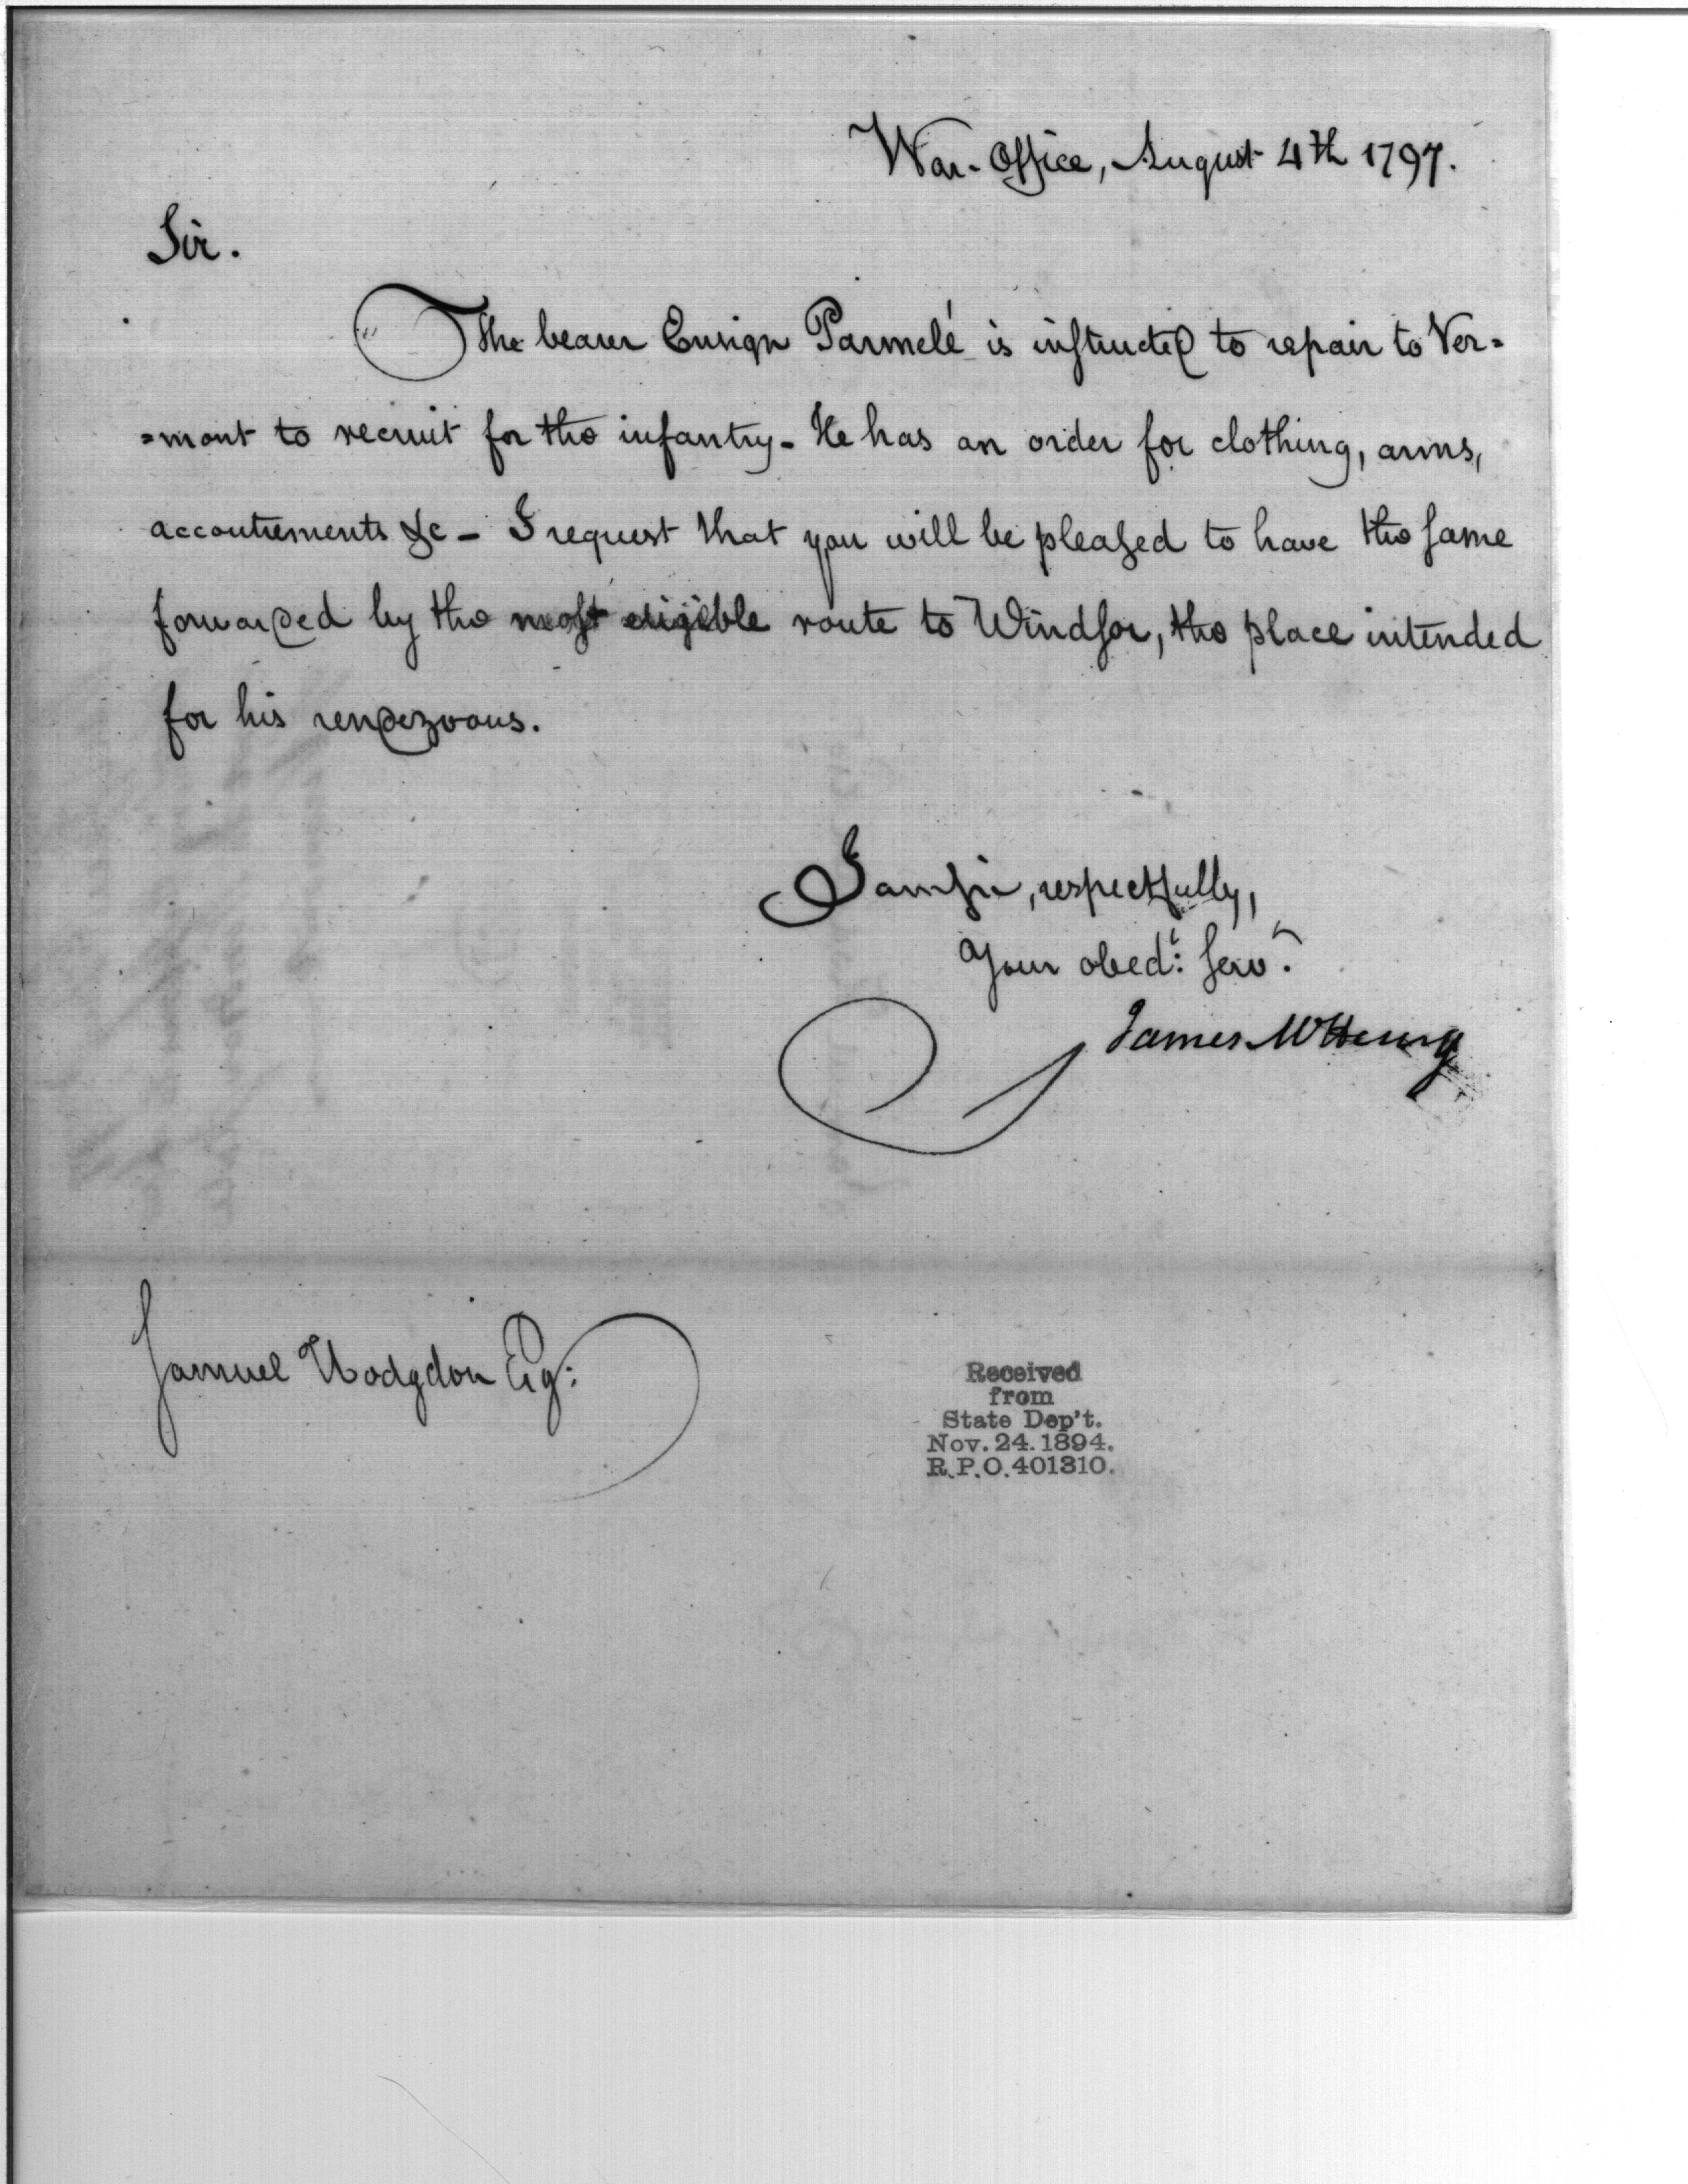 War-Office, August 4th 1797.
Sir.
The bearer Ensign Parmelé is instructed to repair to Ver=
=mont to recruit for the infantry - He has an order for clothing, arms,
accoutrements &c - I request that you will be pleased to have the same
forwarded by the most eligible route to Windsor, the place intended
for his rendezvous.
I am Sir, respectfully,
Your obedt: Servt.
James McHenry
Samuel Hodgdon Esq:
Received
from
State Dep't.
Nov. 24. 1894.
R.P.O. 401310.